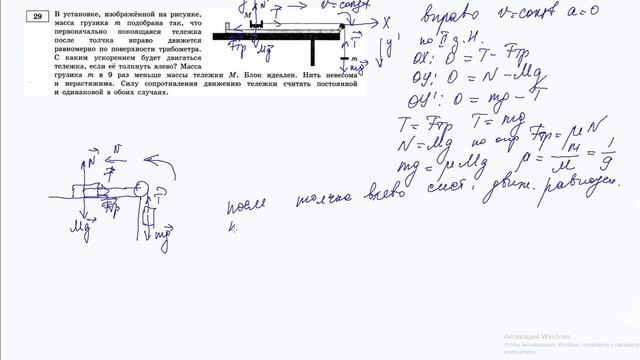 29
В установке, изображённой на рисунке,
масса грузика m подобрана так, что
первоначально покоящаяся тележка
после толчка вправо движется
равномерно по поверхности трибометра.
С каким ускорением будет двигаться
тележка, если её толкнуть влево? Масса
грузика m в 9 раз меньше массы тележки M. Блок идеален. Нить невесома
и нерастяжима. Силу сопротивления движению тележки считать постоянной
и одинаковой в обоих случаях.
M
v=const
T
X
y'
Fтр
Mg
T
m
mg
вправо v=const a=0
по II з.Н.
OX: 0 = T - Fтр
OY: 0 = N - Mg
OY': 0 = mg - T
T = Fтр T = mg
N = Mg по опр Fтр = μN
mg = μMg μ = m/M = 1/9
после толчка влево сист. движ. равнозам.
N
v
T
Fтр
Mg
T
mg
Активация Windows
Чтобы активировать Windows, перейдите к параметрам
компьютера